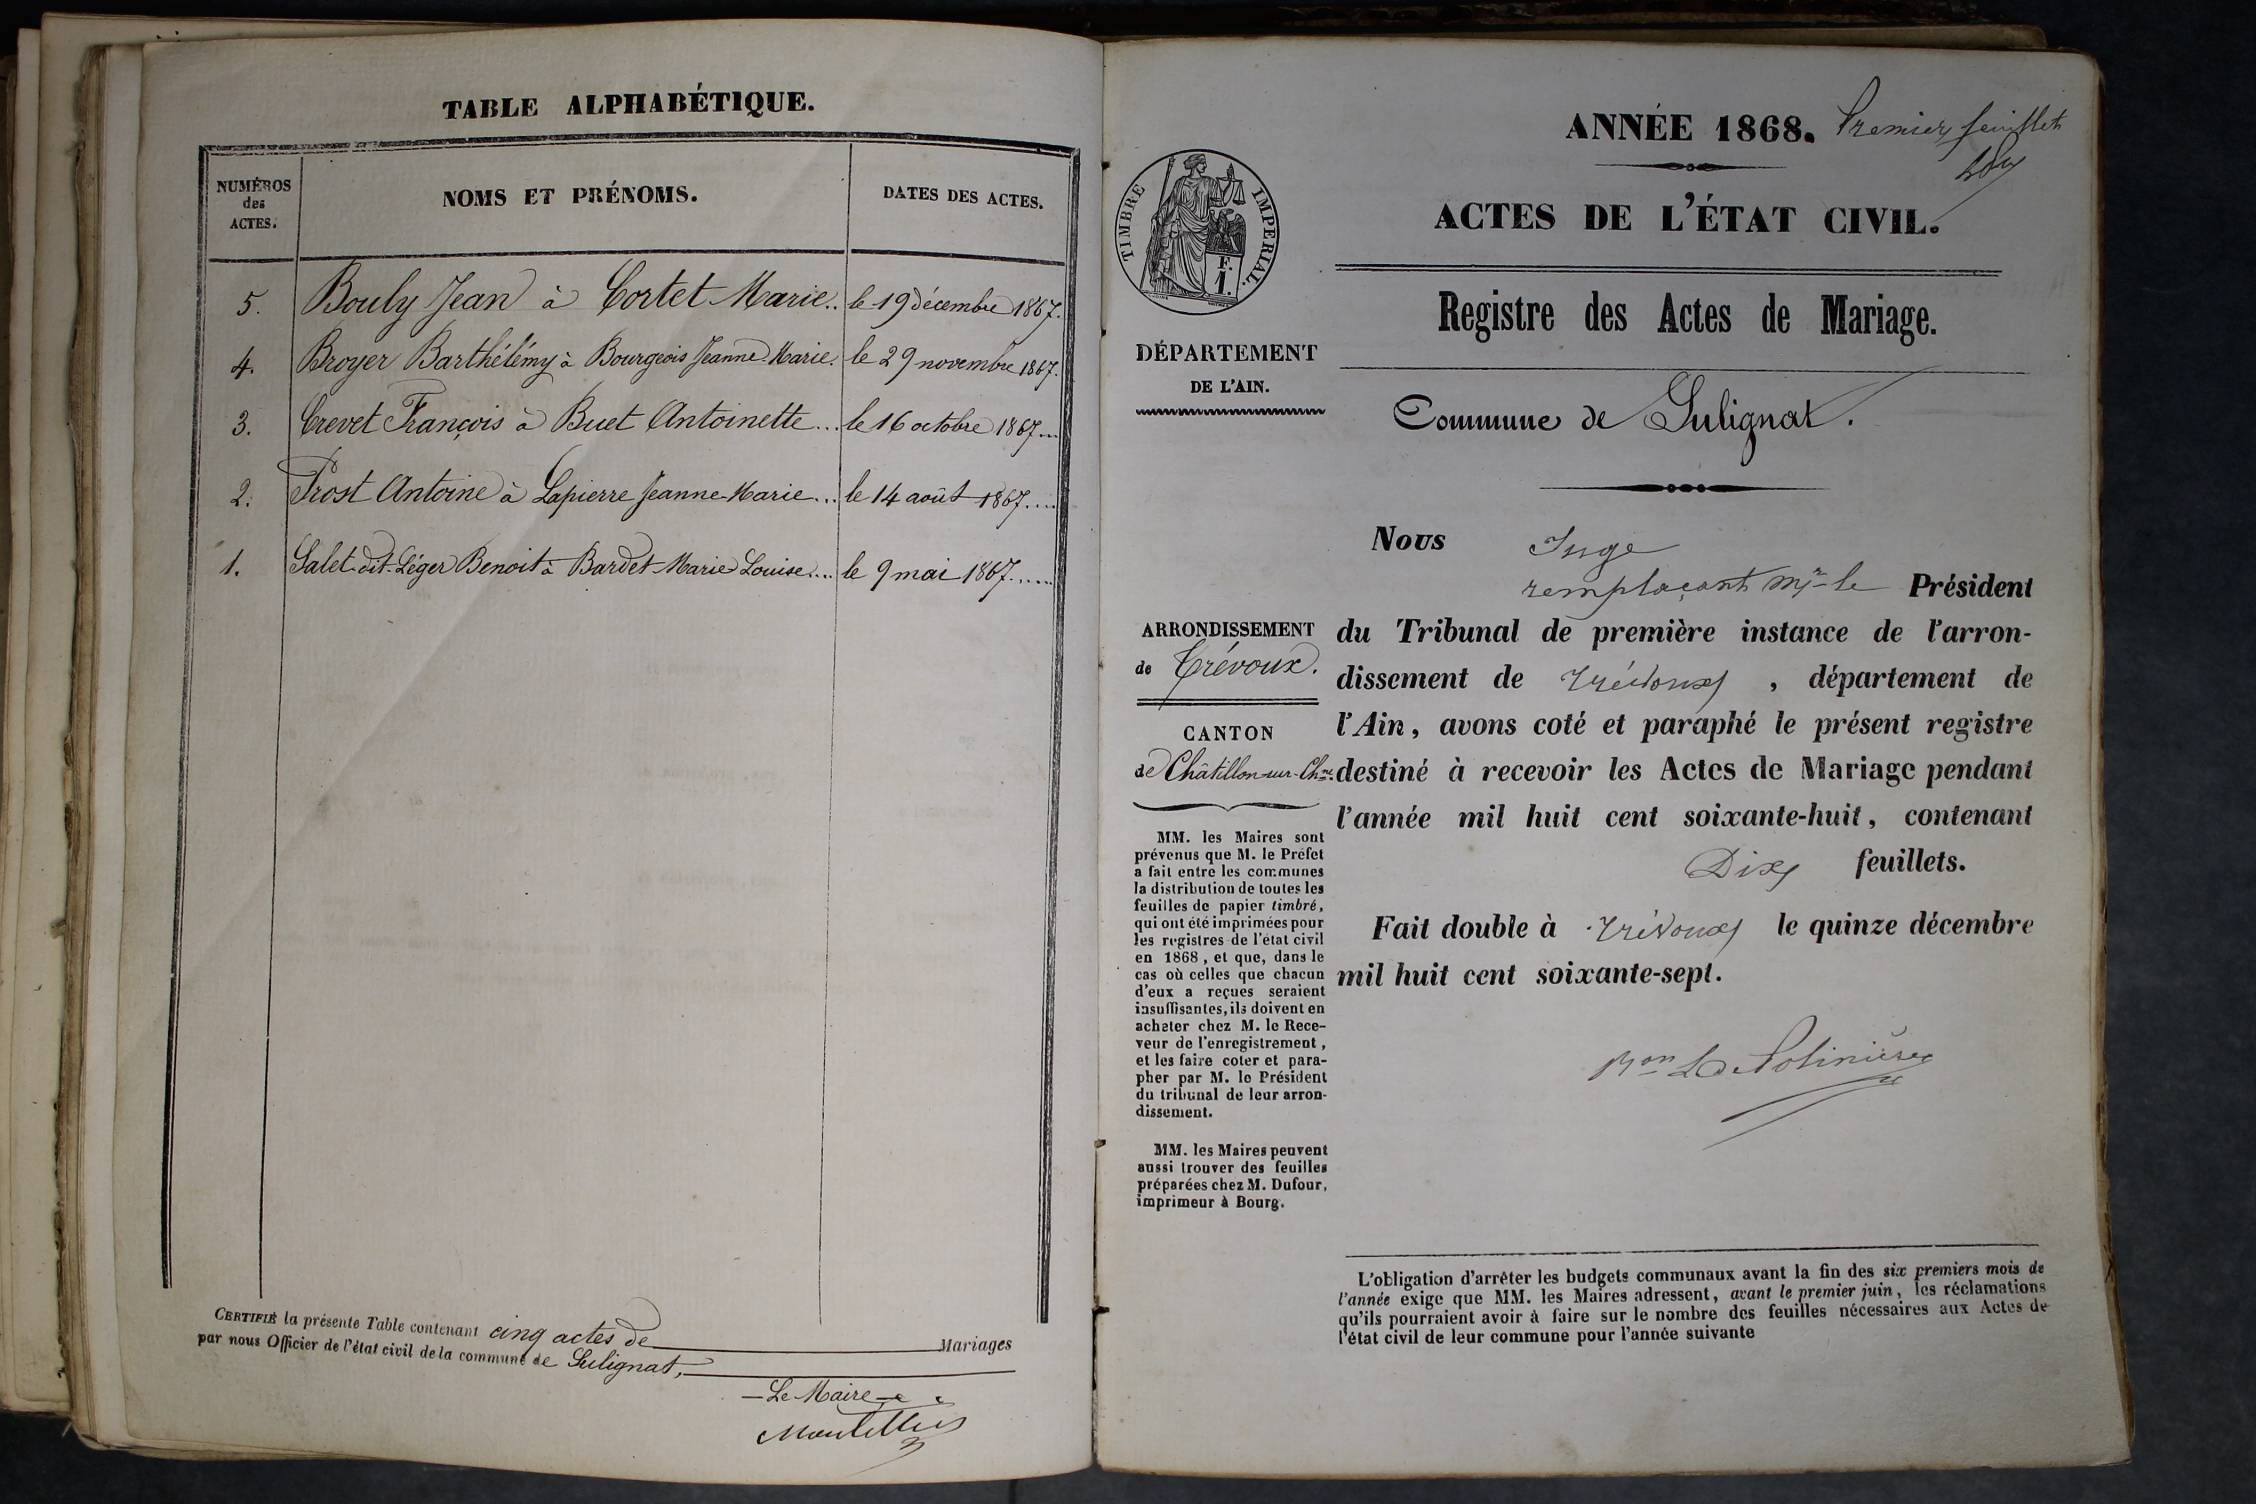 TABLE ALPHABÉTIQUE.
NUMÉROS
des
ACTES.
NOMS ET PRÉNOMS.
DATES DES ACTES.
5. Bouly Jean à Cortet Marie.. le 19 décembre 1867.
4. Broyer Barthélémy à Bourgeois Jeanne-Marie. le 29 novembre 1867.
3. Crevet François à Buet Antoinette... le 16 octobre 1867...
2. Prost Antoine à Lapierre Jeanne-Marie... le 14 août 1867....
1. Salet-dit-Léger Benoit à Bardet Marie Louise.... le 9 mai 1867......
CERTIFIÉ la présente Table contenant cinq actes de Mariages
par nous Officier de l'état civil de la commune de Sulignat,
Le Maire
ANNÉE 1868. Premier feuillet
ACTES DE L'ÉTAT CIVIL.
TIMBRE IMPÉRIAL.
F.
1.
Registre des Actes de Mariage.
DÉPARTEMENT
DE L'AIN.
Commune de Sulignat.
Nous Juge
remplaçant Mr le Président
ARRONDISSEMENT
de Trévoux.
CANTON
de Châtillon-sur-Chne.
du Tribunal de première instance de l'arron-
dissement de Trévoux, département de
l'Ain, avons coté et paraphé le présent registre
destiné à recevoir les Actes de Mariage pendant
l'année mil huit cent soixante-huit, contenant
Dix feuillets.
Fait double à Trévoux le quinze décembre
mil huit cent soixante-sept.
MM. les Maires sont
prévenus que M. le Préfet
a fait entre les communes
la distribution de toutes les
feuilles de papier timbré,
qui ont été imprimées pour
les registres de l'état civil
en 1868, et que, dans le
cas où celles que chacun
d'eux a reçues seraient
insuffisantes, ils doivent en
acheter chez M. le Rece-
veur de l'enregistrement,
et les faire coter et para-
pher par M. le Président
du tribunal de leur arron-
dissement.
MM. les Maires peuvent
aussi trouver des feuilles
préparées chez M. Dufour,
imprimeur à Bourg.
L'obligation d'arrêter les budgets communaux avant la fin des six premiers mois de
l'année exige que MM. les Maires adressent, avant le premier juin, les réclamations
qu'ils pourraient avoir à faire sur le nombre des feuilles nécessaires aux Actes de
l'état civil de leur commune pour l'année suivante